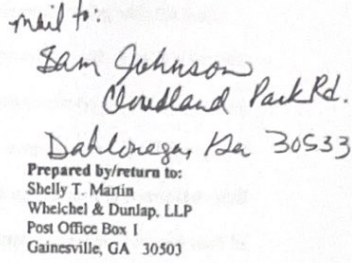 mail to:
Sam Johnson
Cloudland Park Rd.
Dahlonega, Ga 30533
Prepared by/return to:
Shelly T. Martin
Whelchel & Dunlap, LLP
Post Office Box 1
Gainesville, GA 30503